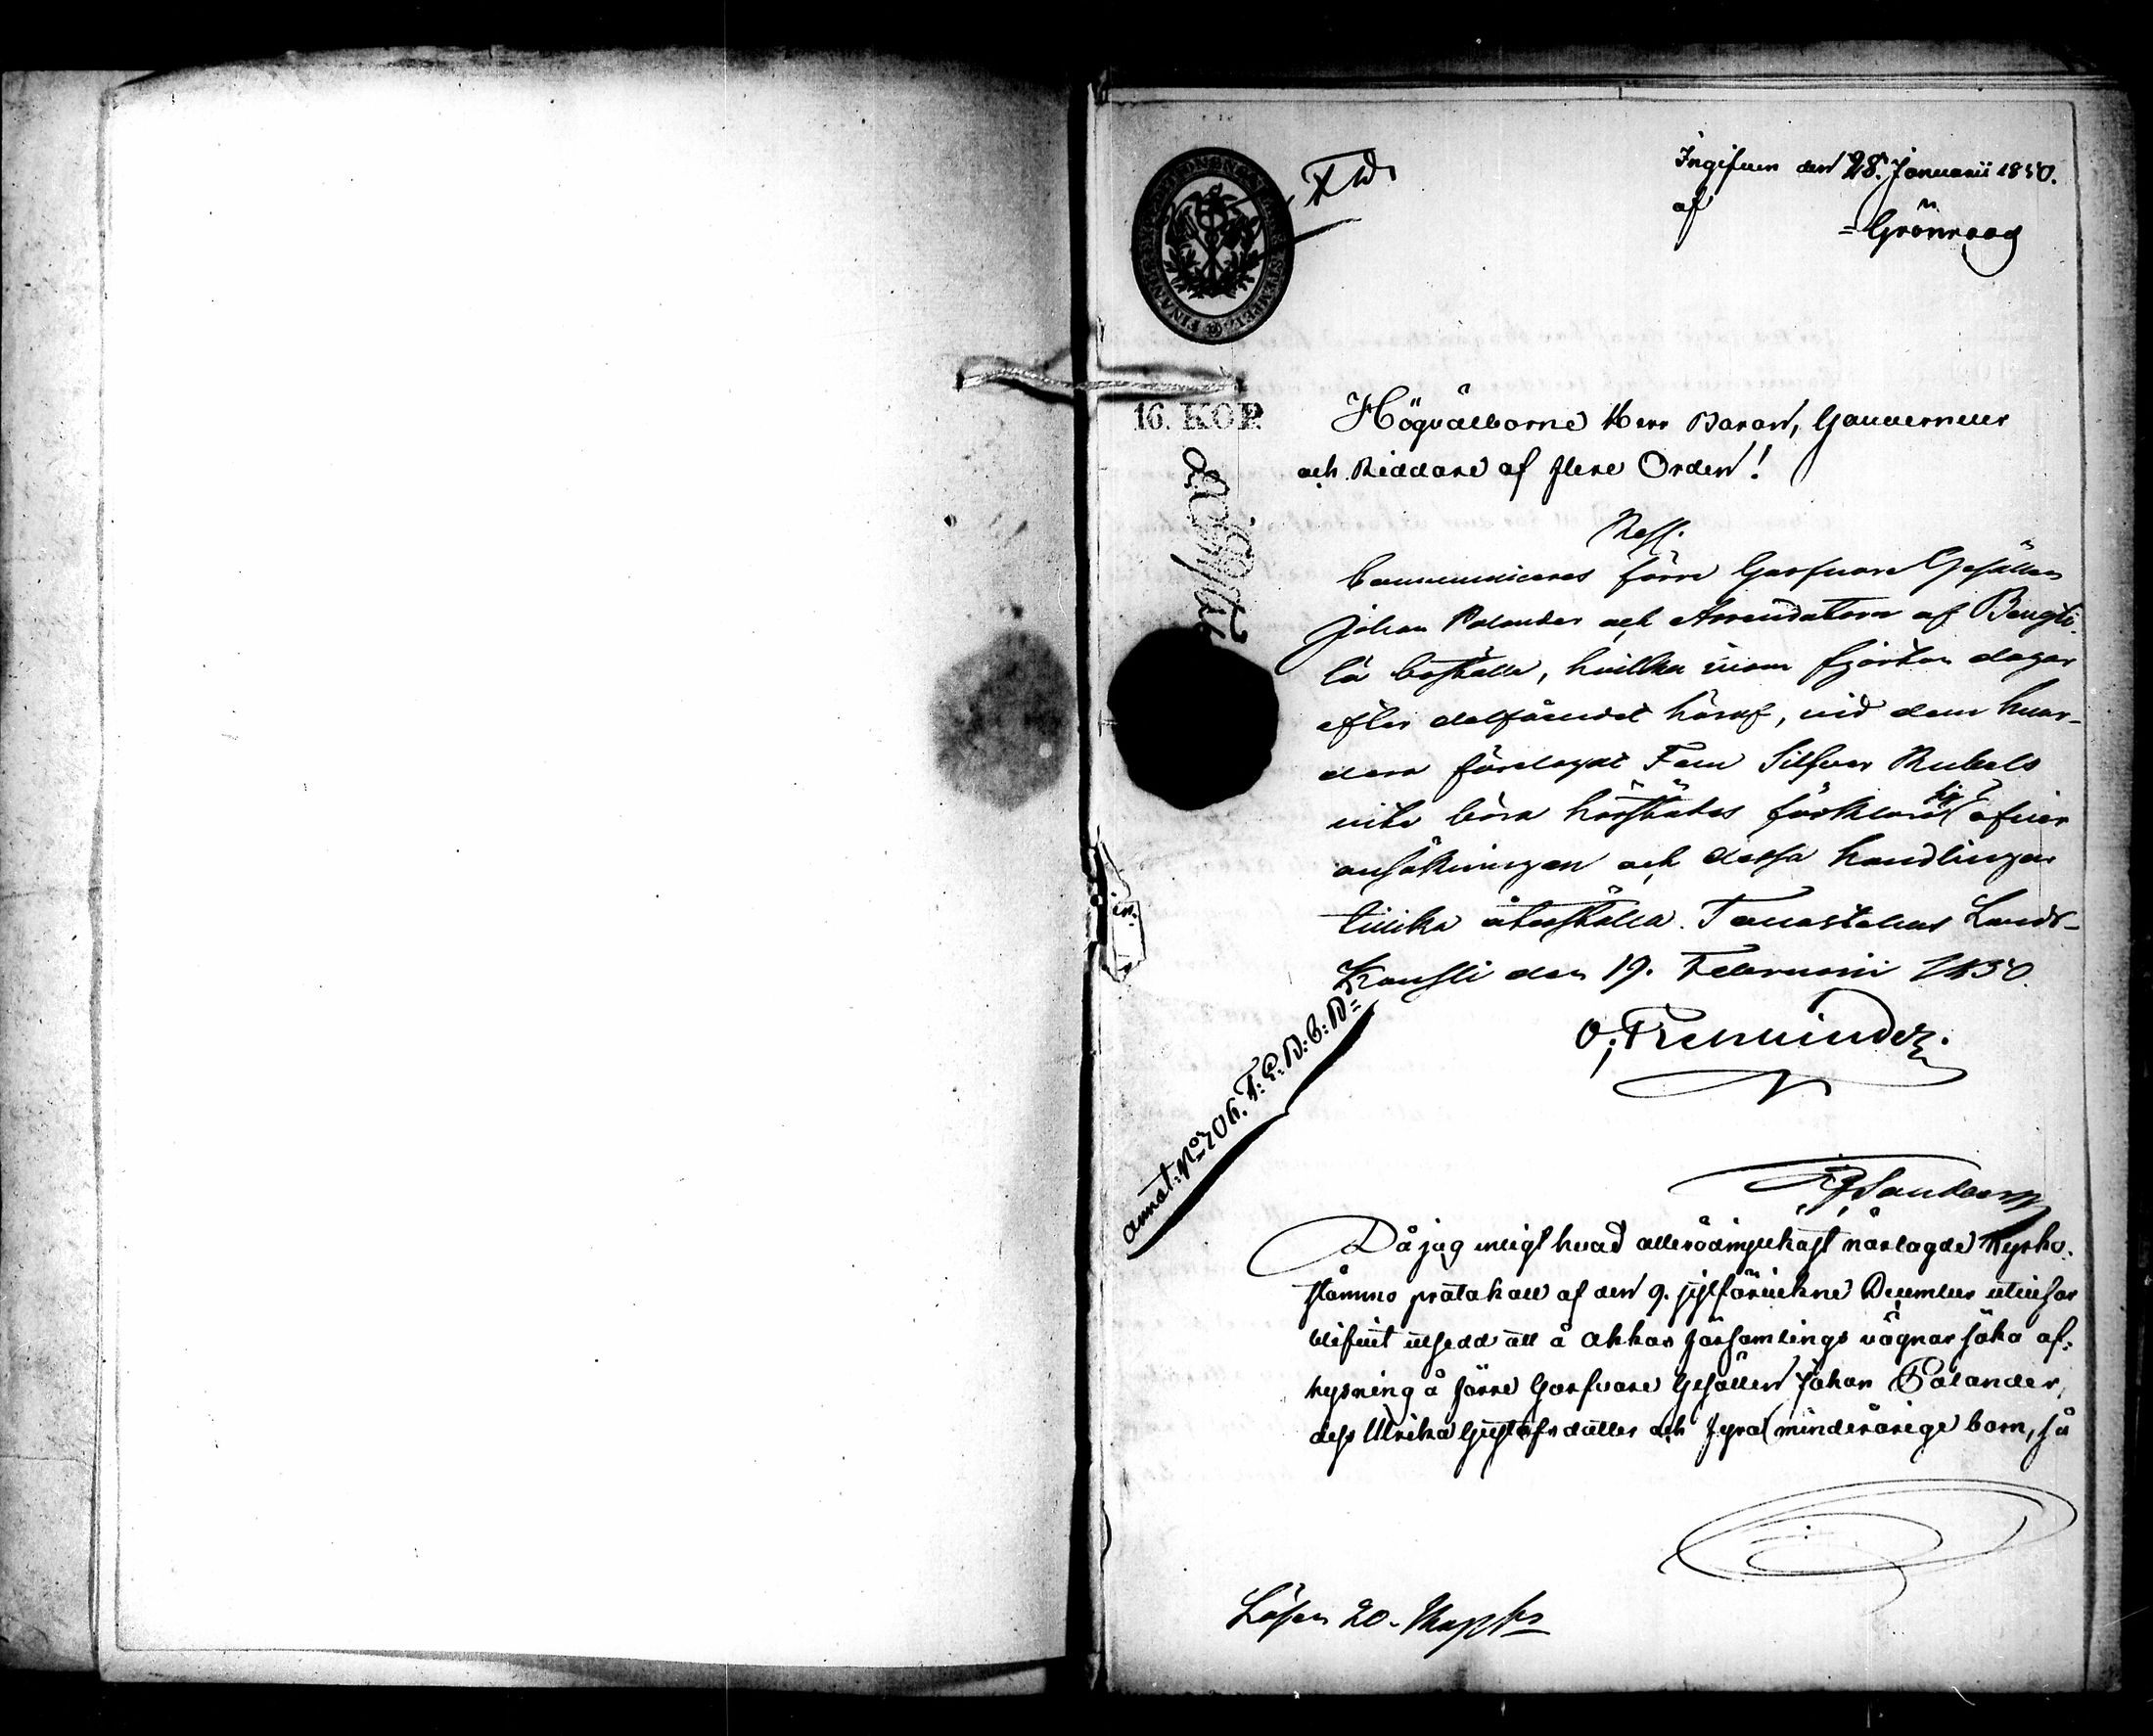 Ingifven den 28. Januarii 1850.
af
= Grönroos
FINANCE EXPEDITIONENS
16. KOP.
Högvälborne Herr Baron, Gouverneur
och Riddare af flere Orden!
Res.
Communiceras förre Garfvare Gesällen
Johan Palander och Arrendatorn af Bengti-
lä boställe, hvilka inom fjorton dagar
efter delfåendet häraf, vid dem hvar-
dera förelagdt Fem Silfver Rubels
vite böra härstädes förklara sig öfver
ansökningen och dessa handlingar
tillika återställa. Tavastehus Lands-
Kansli den 19. Februarii 1850.
annot: No 706. T: L: D: C: D:
Då jag enligt hvad allerödmjukast närlagde Kyrko-
stämmo protokoll af den 9. sistförvekne December utvisar
blifvit utsedd att å Akkas församlings vägnar söka af-
hysning å förre Garfvare Gesällen Johan Palander,
dess Ulrika Gustafsdotter och fyra minderårige barn, så
Lösen 20. Kop Sr